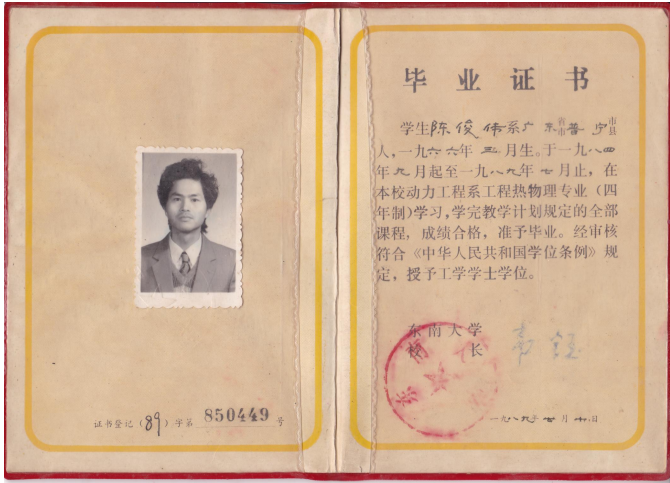 证书登记（89）字第 850449 号
毕业证书
学生陈俊伟系广东省市普宁市县
人，一九六六年三月生。于一九八四
年九月起至一九八九年七月止，在
本校动力工程系工程热物理专业（四
年制）学习，学完教学计划规定的全部
课程，成绩合格，准予毕业。经审核
符合《中华人民共和国学位条例》规
定，授予工学学士学位。
东南大学
校长 韦钰
一九八九年七月十日